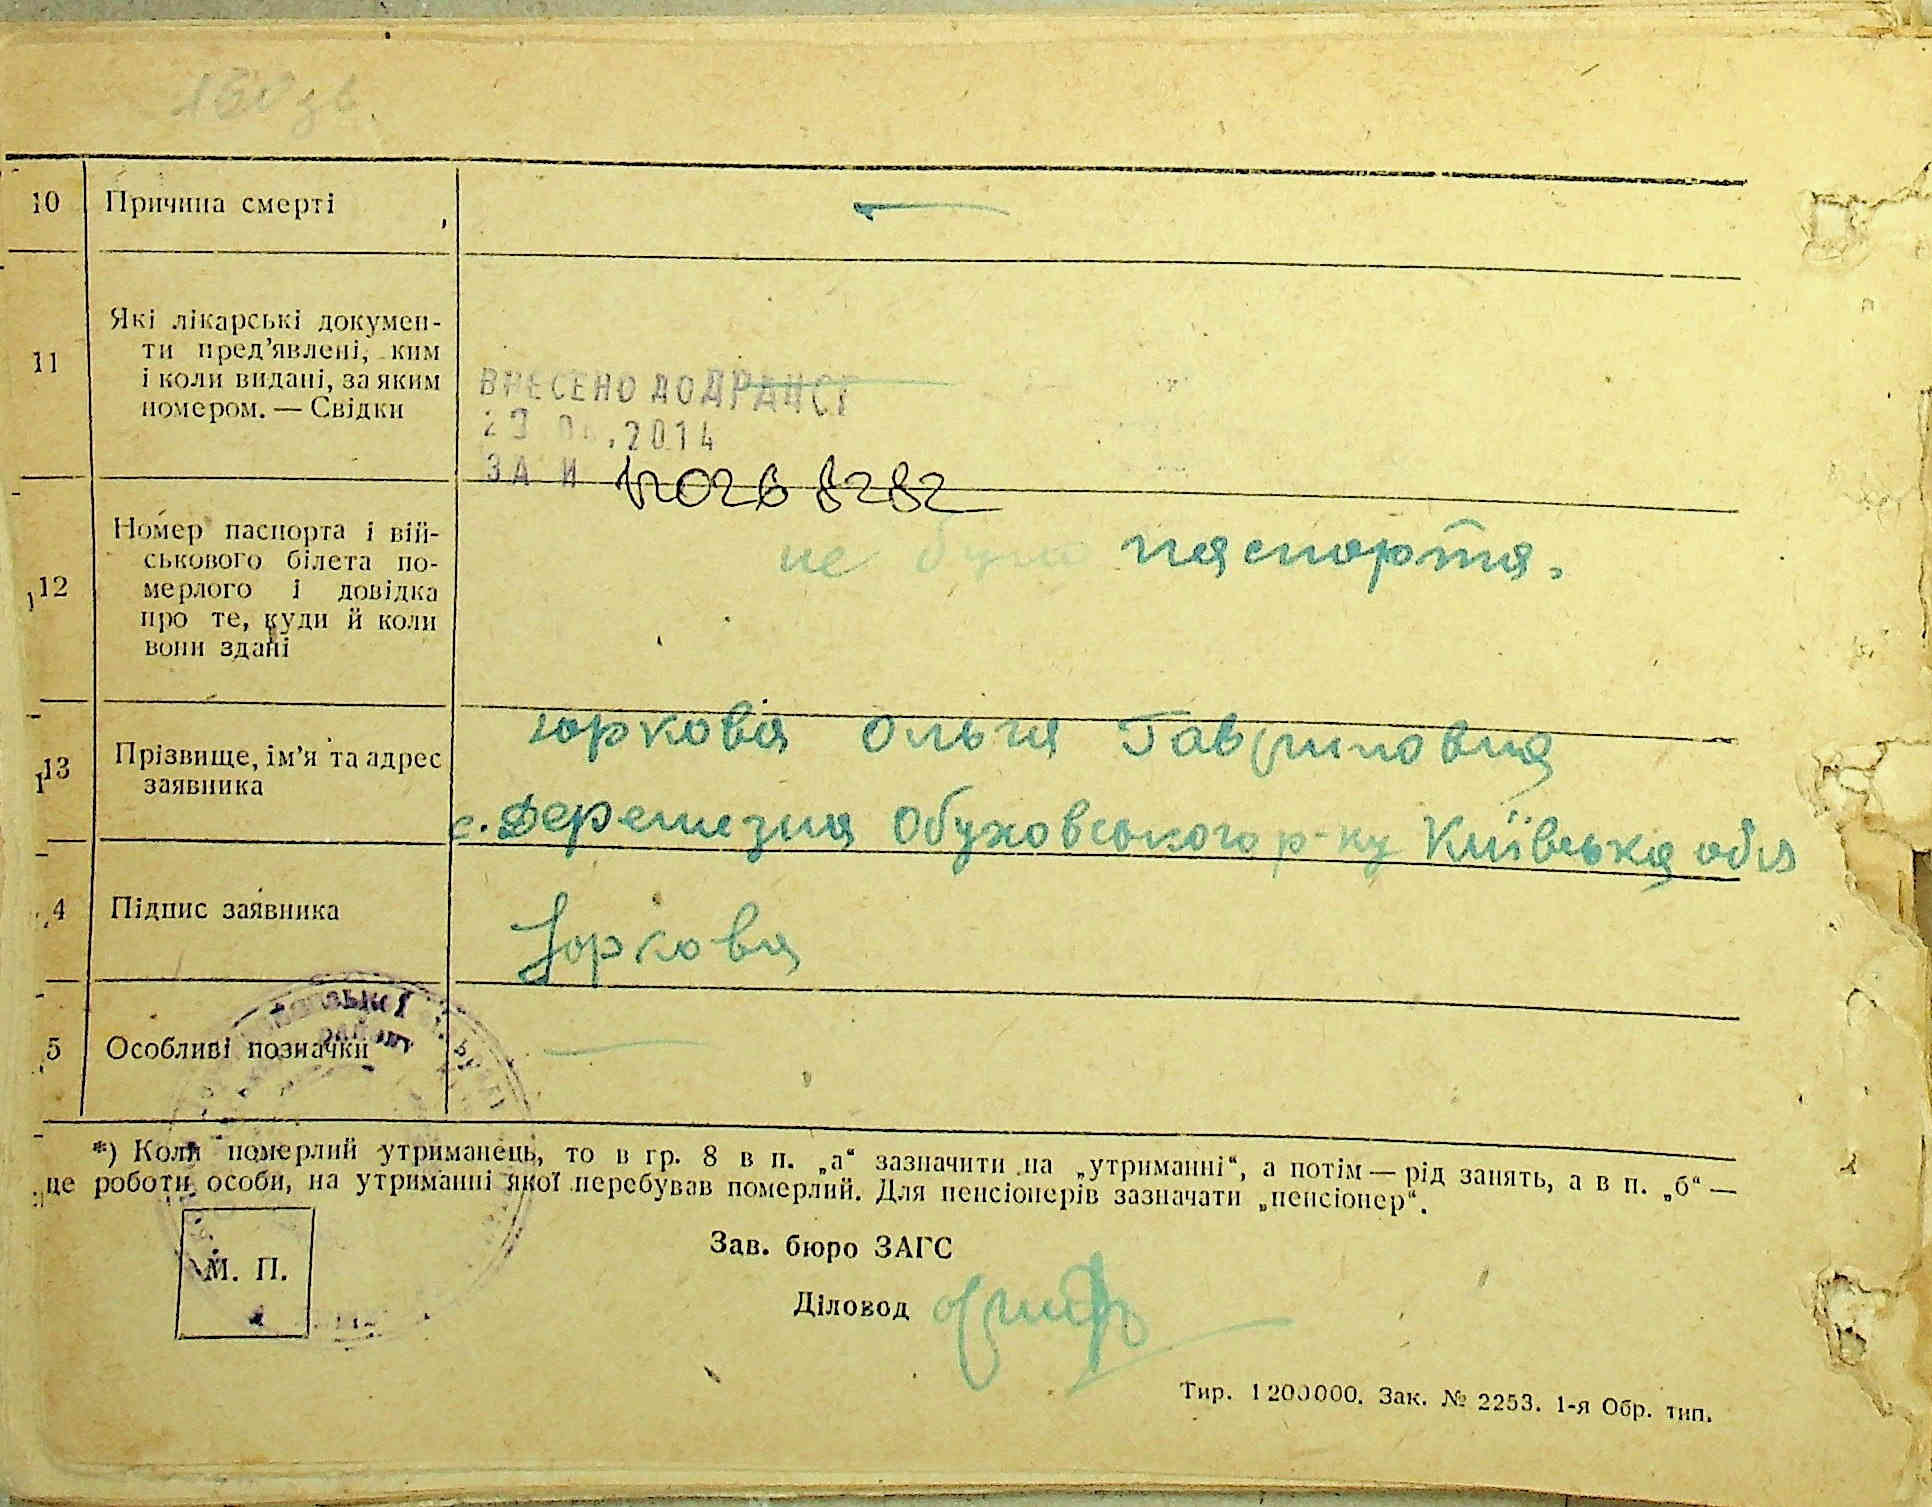 160 зв.
10 Причина смерті —
11 Які лікарські докумен-
ти пред'явлені, ким
і коли видані, за яким
номером. — Свідки
ВНЕСЕНО ДО ДРАЦСГ
.2014
ЗА №
12 Номер паспорта і вій-
ськового білета по-
мерлого і довідка
про те, куди й коли
вони здані
не було паспорта.
13 Прізвище, ім'я та адрес
заявника
Юркова Ольга Гавриловна
с. Деремезна Обуховського р-ну Київська обл
4 Підпис заявника
Юркова
5 Особливі позначки —
*) Коли померлий утриманець, то в гр. 8 в п. „а“ зазначити на „утриманні“, а потім — рід занять, а в п. „б“ —
це роботи особи, на утриманні якої перебував померлий. Для пенсіонерів зазначати „пенсіонер“.
М. П.
Зав. бюро ЗАГС
Діловод
Тир. 1200000. Зак. № 2253. 1-я Обр. тип.